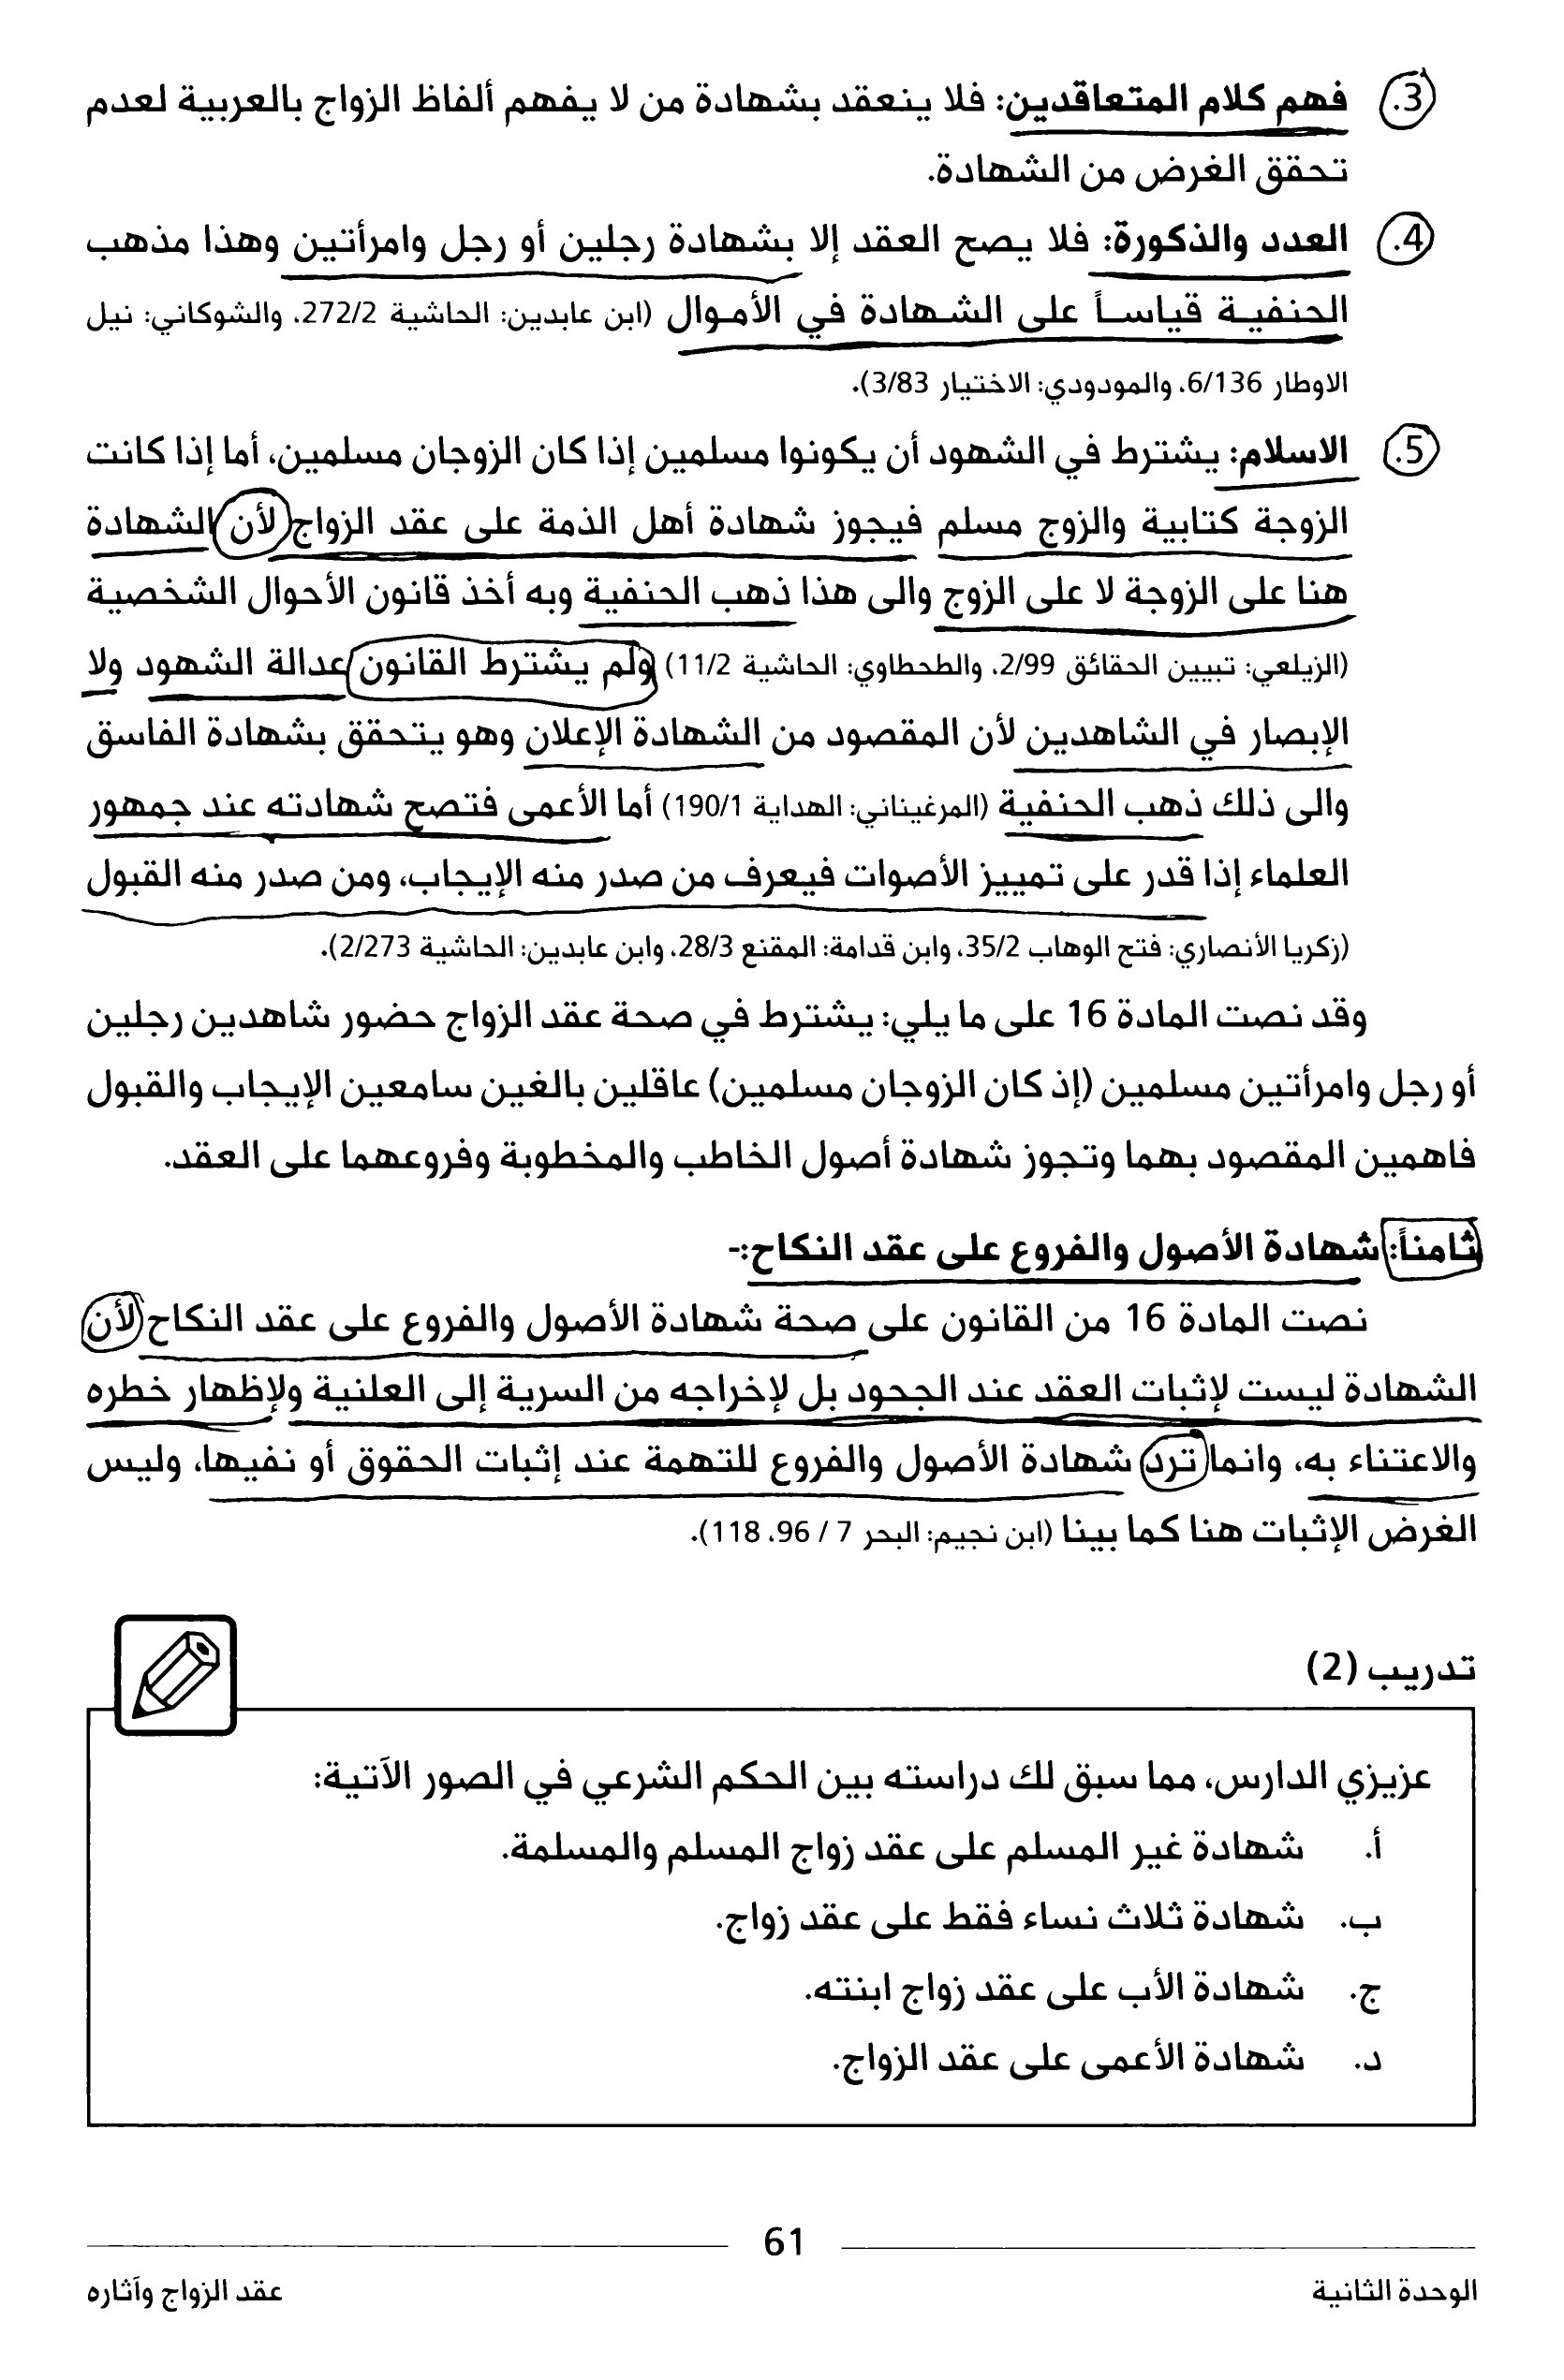 3. فهم كلام المتعاقدين: فلا ينعقد بشهادة من لا يفهم ألفاظ الزواج بالعربية لعدم
تحقق الغرض من الشهادة.
4. العدد والذكورة: فلا يصح العقد إلا بشهادة رجلين أو رجل وامرأتين وهذا مذهب
الحنفية قياساً على الشهادة في الأموال (ابن عابدين: الحاشية 272/2، والشوكاني: نيل
الاوطار 6/136، والمودودي: الاختيار 3/83).
5. الاسلام: يشترط في الشهود أن يكونوا مسلمين إذا كان الزوجان مسلمين، أما إذا كانت
الزوجة كتابية والزوج مسلم فيجوز شهادة أهل الذمة على عقد الزواج لأن الشهادة
هنا على الزوجة لا على الزوج والى هذا ذهب الحنفية وبه أخذ قانون الأحوال الشخصية
(الزيلعي: تبيين الحقائق 2/99، والطحطاوي: الحاشية 11/2) ولم يشترط القانون عدالة الشهود ولا
الإبصار في الشاهدين لأن المقصود من الشهادة الإعلان وهو يتحقق بشهادة الفاسق
والى ذلك ذهب الحنفية (المرغيناني: الهداية 190/1) أما الأعمى فتصح شهادته عند جمهور
العلماء إذا قدر على تمييز الأصوات فيعرف من صدر منه الإيجاب، ومن صدر منه القبول
(زكريا الأنصاري: فتح الوهاب 35/2، وابن قدامة: المقنع 28/3، وابن عابدين: الحاشية 2/273).
وقد نصت المادة 16 على ما يلي: يشترط في صحة عقد الزواج حضور شاهدين رجلين
أو رجل وامرأتين مسلمين (إذ كان الزوجان مسلمين) عاقلين بالغين سامعين الإيجاب والقبول
فاهمين المقصود بهما وتجوز شهادة أصول الخاطب والمخطوبة وفروعهما على العقد.
ثامناً: شهادة الأصول والفروع على عقد النكاح:-
نصت المادة 16 من القانون على صحة شهادة الأصول والفروع على عقد النكاح لأن
الشهادة ليست لإثبات العقد عند الجحود بل لإخراجه من السرية إلى العلنية ولإظهار خطره
والاعتناء به، وانما ترد شهادة الأصول والفروع للتهمة عند إثبات الحقوق أو نفيها، وليس
الغرض الإثبات هنا كما بينا (ابن نجيم: البحر 7 / 96، 118).
تدريب (2)
عزيزي الدارس، مما سبق لك دراسته بين الحكم الشرعي في الصور الآتية:
أ. شهادة غير المسلم على عقد زواج المسلم والمسلمة.
ب. شهادة ثلاث نساء فقط على عقد زواج.
ج. شهادة الأب على عقد زواج ابنته.
د. شهادة الأعمى على عقد الزواج.
61
الوحدة الثانية
عقد الزواج وآثاره